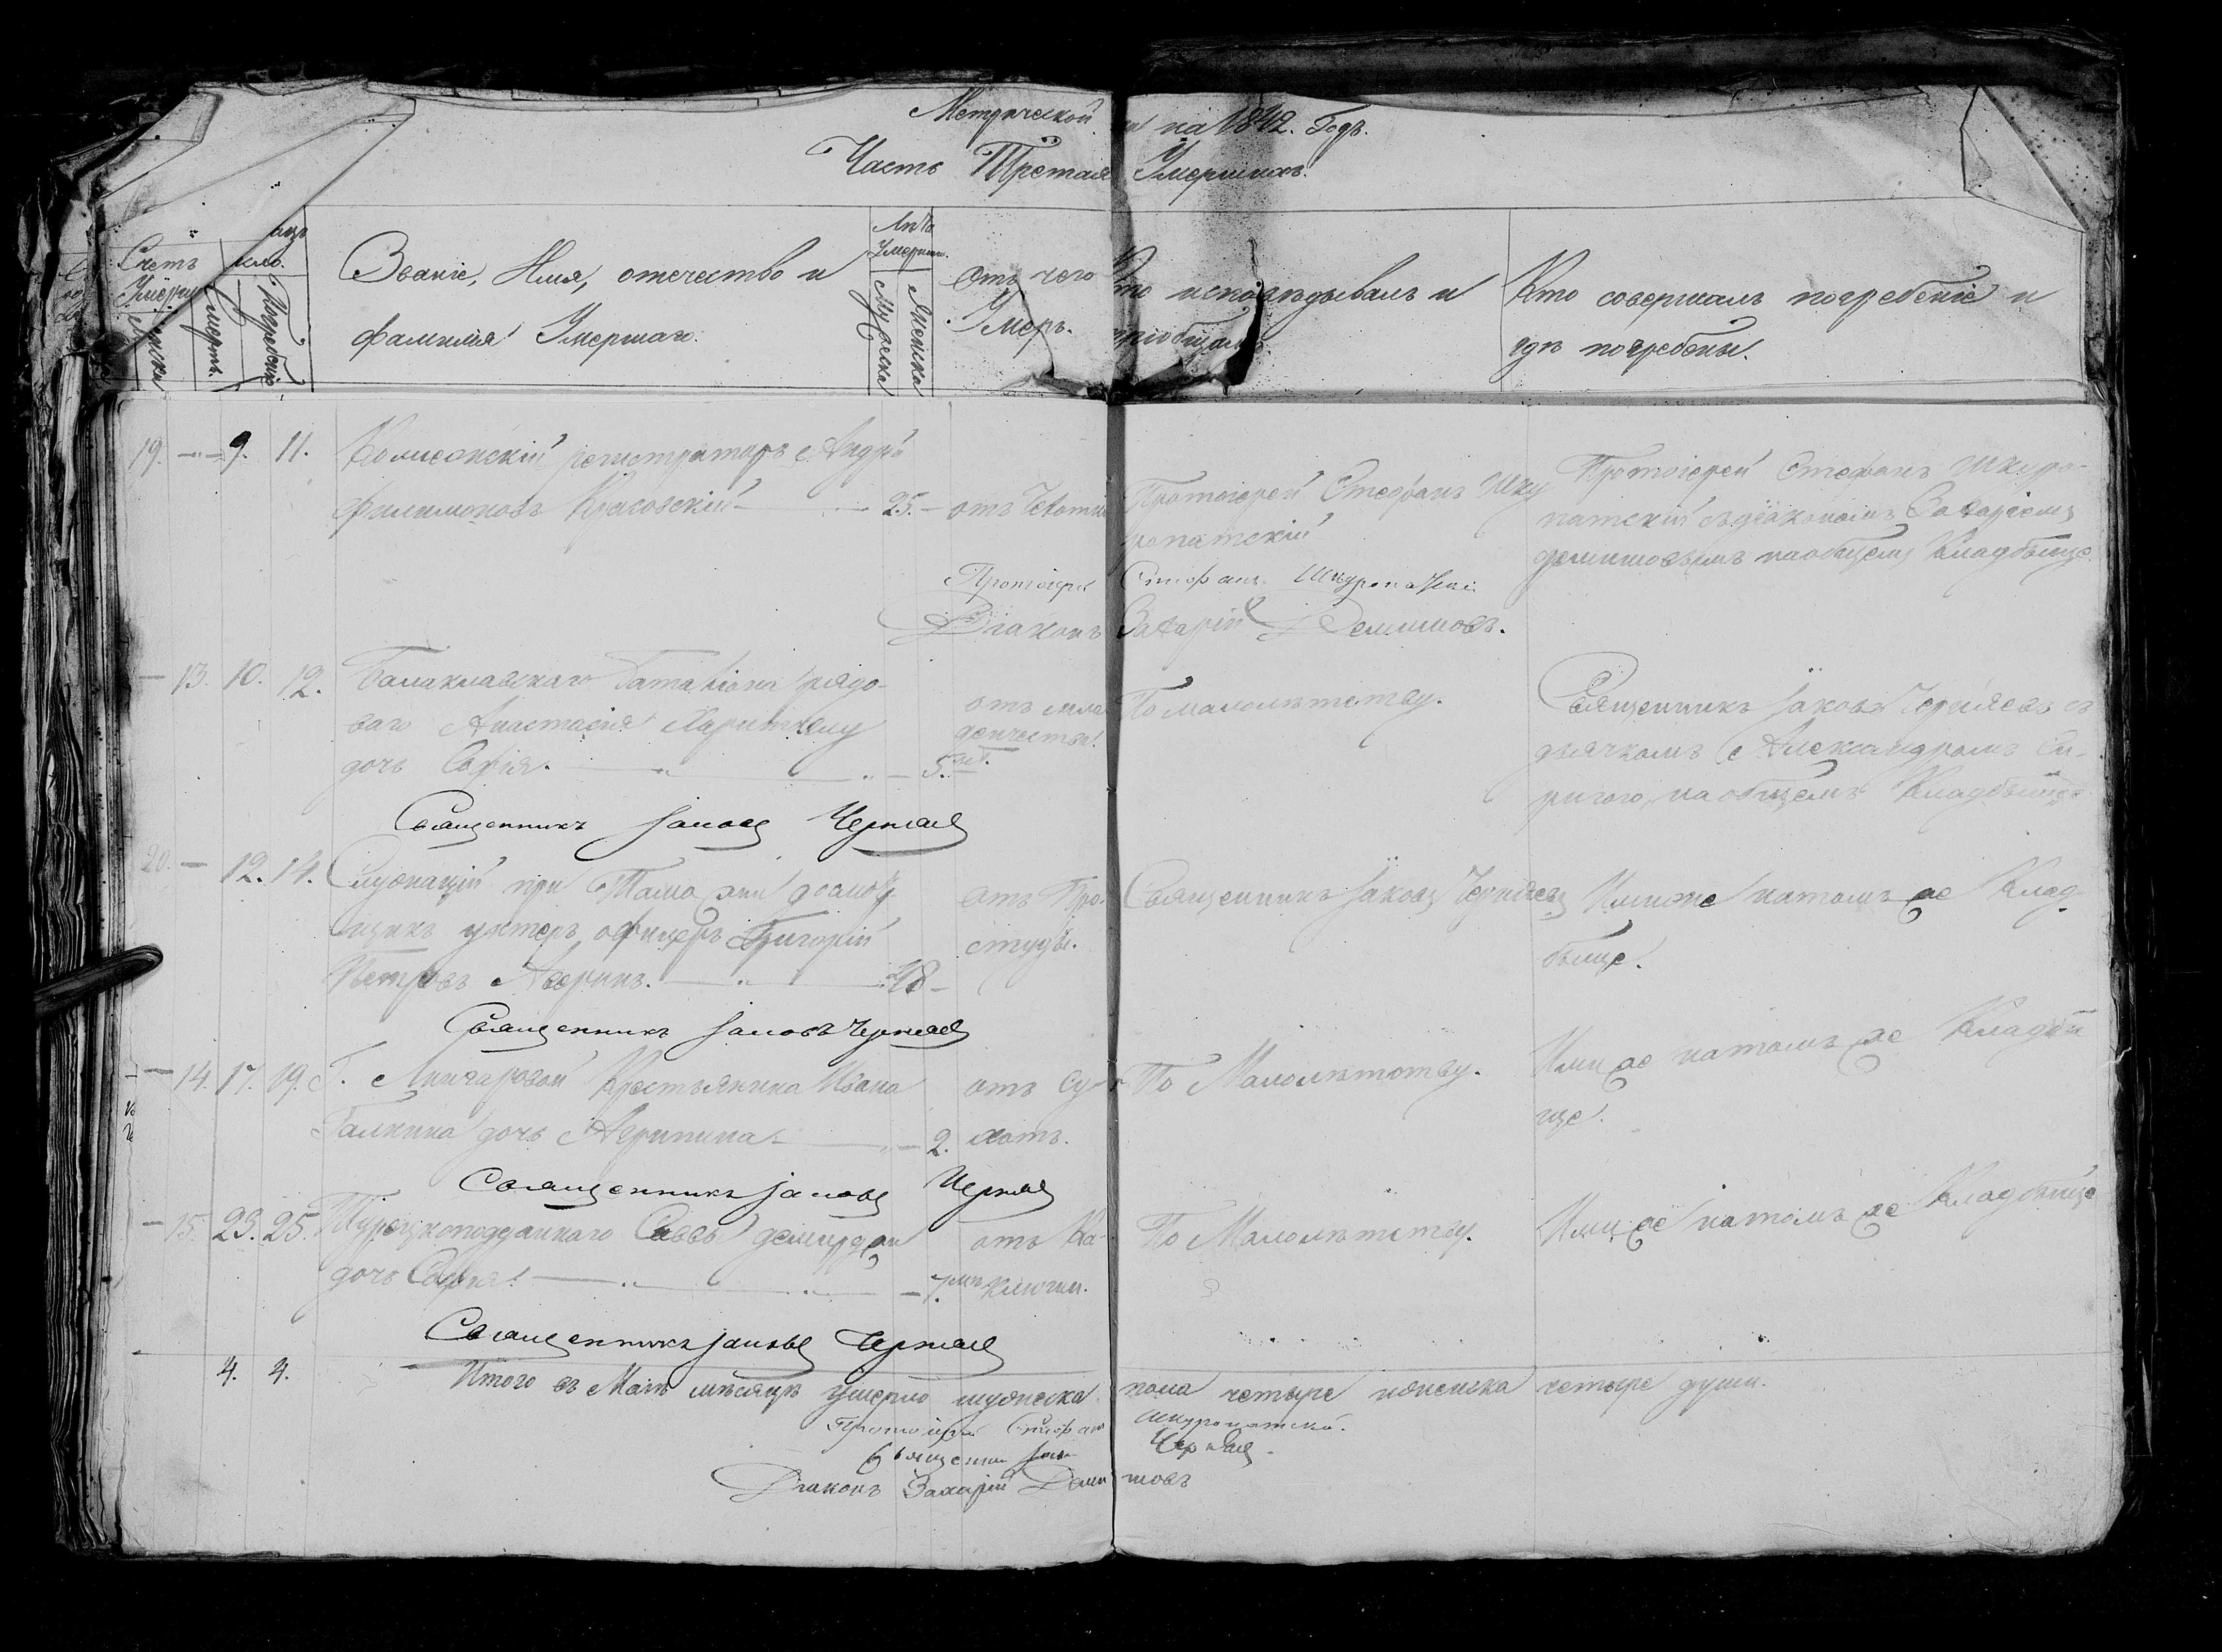 Метрической на 1842. Годъ.
Часть Третая Умершихъ.
Счетъ Умерш
Женска
Смерти.
Погребенія
Званіе, Имя, отечество и
фамилія Умершаго.
Лѣта
Умерши.
Мужеска
Женска
Отъ чего
Умеръ.
Кто исповѣдывалъ и
пріобщалъ.
Кто совершалъ погребеніе и
гдѣ погребены.
19. 9. 11. регистраторъ Андрей
Филимоновъ Красовскій 25. отъ Чехотки
Протоіерей Стефанъ Шку
ропатскій
Протоіерей Стефанъ Шкуро-
патскій съ діакономъ Захаріемъ
на общемъ Кладбыще.
Протоіерей Стефанъ Шкуропатскій
Діаконъ Захарій Демишовъ.
13. 10. 12. Балаклавскаго Баталіона рядо-
ваго Анастасія
дочь Софія. 5.
отъ мла
денчества.
По малолѣтству.
Священникъ Іаковъ Черняевъ съ
дьячкомъ Александромъ
на общемъ Кладбыще
Священникъ Іаковъ Черняев
20. 12. 14. Служащій при
унтеръ офицеръ Григорій
Петровъ Аверинъ. 48
отъ Про
студы.
Священникъ Іаковъ Черняевъ
Имиже на томъ же Клад-
быще.
Священникъ Іаковъ Черняев
14. 17. 19. Г. Крестьянина Ивана
Галкина дочь Агрипина 2.
отъ Су-
хотъ.
По Малолѣтству.
Ими же на томъ же Кладби
ще.
Священникъ Іаковъ Черняев
15. 23. 25. Турецкоподданнаго Саввы
дочь Софія. 7. мѣ
отъ Ка-
клюши.
По Малолѣтству.
Ими же на томъ же Кладбыще
Священникъ Іаковъ Черняев
4. 4. Итого въ Маіѣ мѣсяцѣ умерло мужеска пола четыре и женска четыре души.
Протоіерей Стефанъ Шкуропатскій.
Священникъ Черняев
Діаконъ Захарій Демишовъ